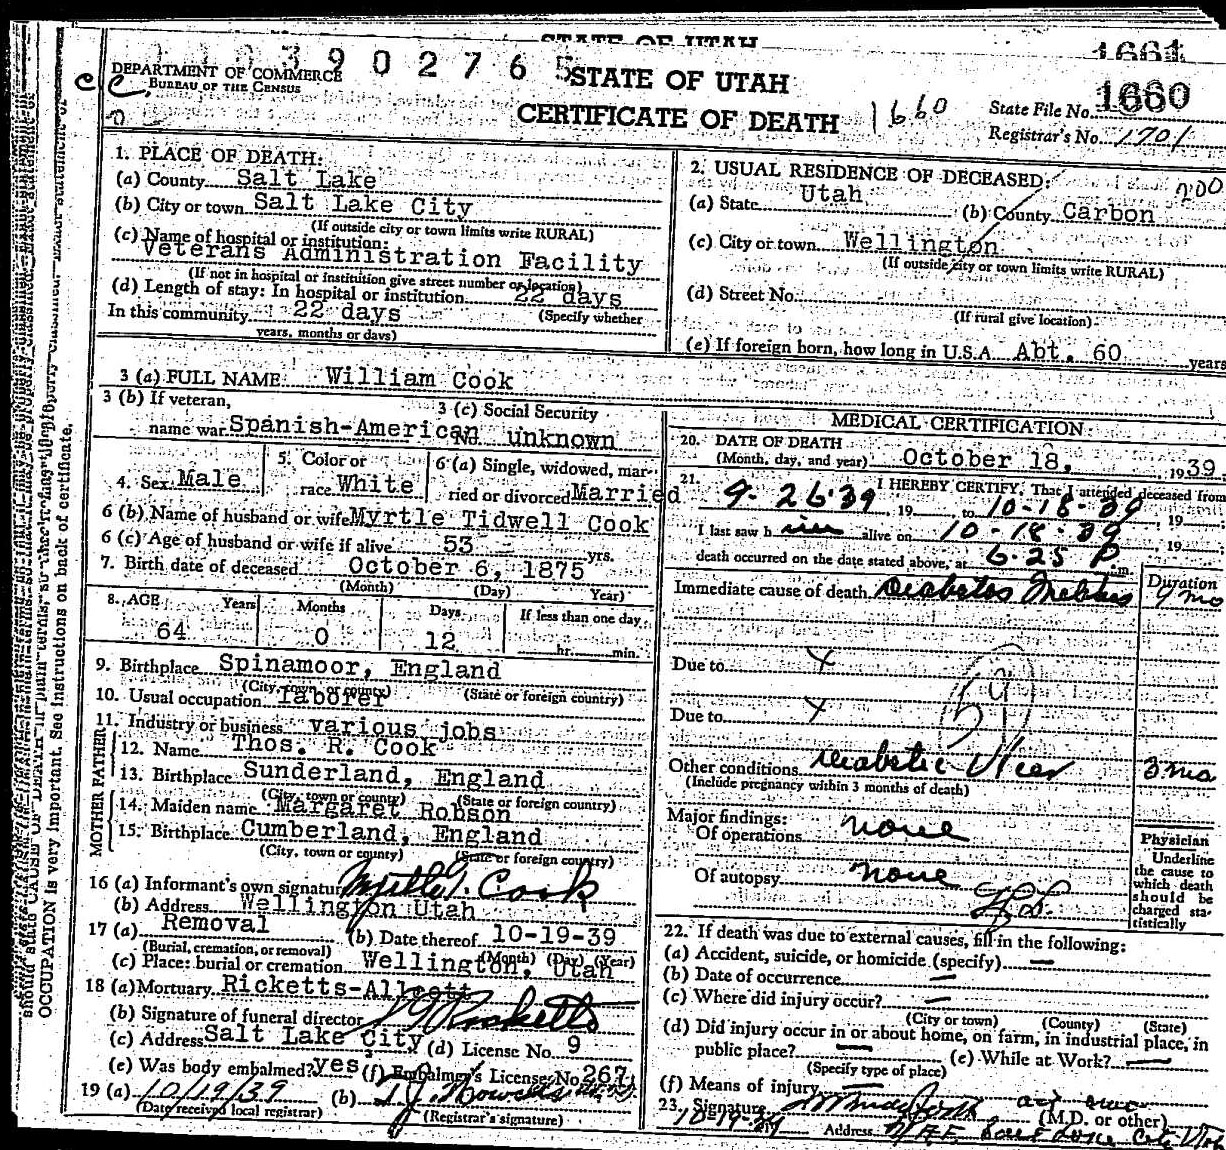 STATE OF UTAH
1661
0390276
DEPARTMENT OF COMMERCE
BUREAU OF THE CENSUS
STATE OF UTAH
CERTIFICATE OF DEATH
1660
State File No. 1660
Registrar's No. 1701
1. PLACE OF DEATH:
(a) County Salt Lake
(b) City or town Salt Lake City
(If outside city or town limits write RURAL)
(c) Name of hospital or institution:
Veterans Administration Facility
(If not in hospital or institution give street number or location)
(d) Length of stay: In hospital or institution 22 days
In this community 22 days (Specify whether
years, months or days)
2. USUAL RESIDENCE OF DECEASED:
(a) State Utah (b) County Carbon
(c) City or town Wellington
(If outside city or town limits write RURAL)
(d) Street No.
(If rural give location)
(e) If foreign born, how long in U.S.A. Abt. 60 years
3 (a) FULL NAME William Cook
3 (b) If veteran,
name war Spanish-American
3 (c) Social Security
No. unknown
4. Sex Male
5. Color or
race White
6 (a) Single, widowed, mar-
ried or divorced Married
6 (b) Name of husband or wife Myrtle Tidwell Cook
6 (c) Age of husband or wife if alive 53 yrs.
7. Birth date of deceased October 6, 1875
(Month) (Day) Year)
8. AGE Years Months Days If less than one day
64 0 12 hr. min.
9. Birthplace Spinamoor, England
(City, town or county) (State or foreign country)
10. Usual occupation laborer
11. Industry or business various jobs
FATHER
12. Name Thos. R. Cook
13. Birthplace Sunderland, England
(City, town or county) (State or foreign country)
MOTHER
14. Maiden name Margaret Robson
15. Birthplace Cumberland, England
(City, town or county) (State or foreign country)
16 (a) Informant's own signature Myrtle T. Cook
(b) Address Wellington Utah
17 (a) Removal (b) Date thereof 10-19-39
(Burial, cremation, or removal) (Month) (Day) (Year)
(c) Place: burial or cremation Wellington, Utah
18 (a) Mortuary Ricketts-Allcott
(b) Signature of funeral director Ricketts
(c) Address Salt Lake City (d) License No. 9
(e) Was body embalmed? yes, (f) Embalmer's License No. 267
19 (a) 10/19/39 (b)
(Date received local registrar) (Registrar's signature)
MEDICAL CERTIFICATION
20. DATE OF DEATH
(Month, day, and year) October 18, 1939
21. I HEREBY CERTIFY, That I attended deceased from
9-26-39, 19 to 10-18-39, 19
I last saw h im alive on 10-18-39, 19
death occurred on the date stated above, at 6:25 P.m.
Immediate cause of death Diabetes Mellitus
Duration
9 mo
Due to
Due to
59
Other conditions Diabetic Ulcer 3 mo
(Include pregnancy within 3 months of death)
Major findings:
Of operations none
Of autopsy none
Physician
Underline
the cause to
which death
should be
charged sta-
tistically
22. If death was due to external causes, fill in the following:
(a) Accident, suicide, or homicide (specify) —
(b) Date of occurrence —
(c) Where did injury occur? —
(City or town) (County) (State)
(d) Did injury occur in or about home, on farm, in industrial place, in
public place? — (e) While at Work? —
(Specify type of place)
(f) Means of injury —
23. Signature
(M.D. or other)
10-19-39 Address V.A.F. Salt Lake City Utah
OCCUPATION is very important. See instructions on back of certificate.